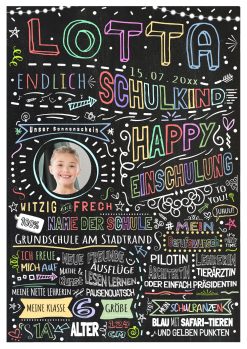 LOTTA
ENDLICH
15.07.20xx
SCHULKIND
Unser Sonnenschein
HAPPY
EINSCHULUNG
TO YOU!
WITZIG & FRECH
100%
NAME DER SCHULE
GRUNDSCHULE AM STADTRAND
MEIN
ICH FREUE MICH AUF
NEUE FREUNDE
AUSFLÜGE
PILOTIN
LESEN LERNEN
TIERÄRZTIN
MEINE NETTE LEHRERIN
PAUSENQUATSCH
ODER EINFACH PRÄSIDENTIN
MEINE KLASSE
GRÖßE
SCHULRANZEN
BLAU MIT SAFARI-TIEREN
UND GELBEN PUNKTEN
1A
ALTER
6